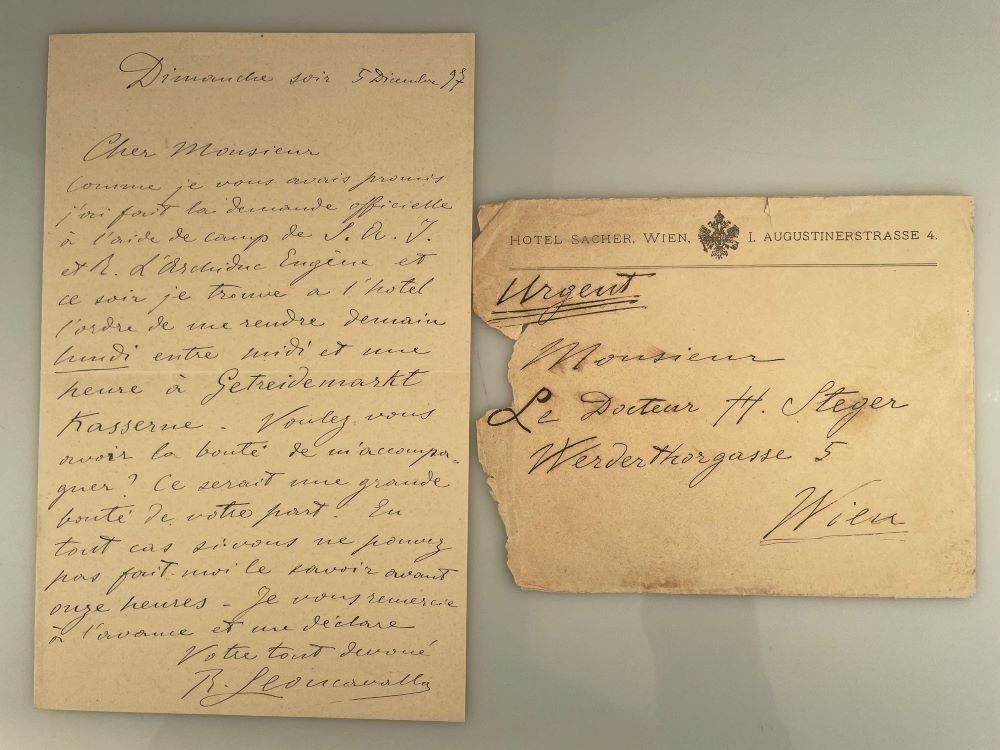 Dimanche soir 5 Décembre 97
Cher Monsieur
Comme je vous avais promis
j'ai fait la demande officielle
à l'aide de camp de S. A. I.
et R. L'Archiduc Eugène et
ce soir je trouve a l'hotel
l'ordre de me rendre demain
lundi entre midi et une
heure à Getreidemarkt
Kasserne - Voulez vous
avoir la bonté de m'accompa-
gner? Ce serait une grande
bonté de votre part. En
tout cas si vous ne pouvez
pas fait-moi le savoir avant
onze heures - Je vous remercie
à l'avance et me déclare
Votre tout devoué
R. Leoncavallo
HOTEL SACHER, WIEN, I. AUGUSTINERSTRASSE 4.
Urgent
Monsieur
Le Docteur H. Steger
Werderthorgasse 5
Wien